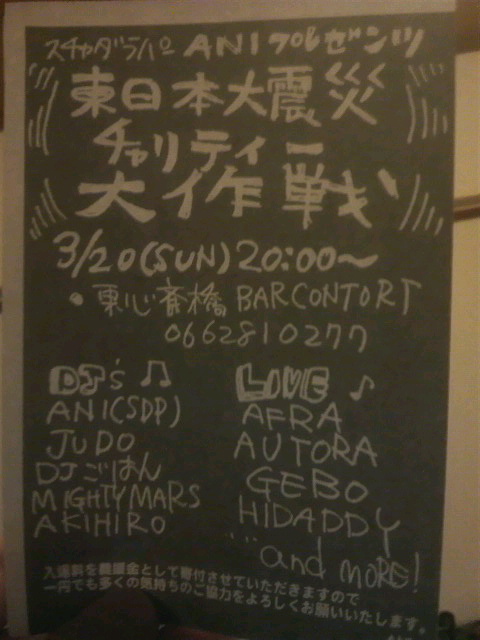 スチャダラパー ANIプレゼンツ
東日本大震災
チャリティー
大作戦
3/20(SUN)20:00〜
・東心斎橋 BAR CONTORT
0662810277
DJ's ♫
ANI(SDP)
JUDO
DJごはん
MIGHTYMARS
AKIHIRO
LIVE ♪
AFRA
AUTORA
GEBO
HIDADDY
...and MORE!
入場料を義援金として寄付させていただきますので
一円でも多くの気持ちのご協力をよろしくお願いいたします。